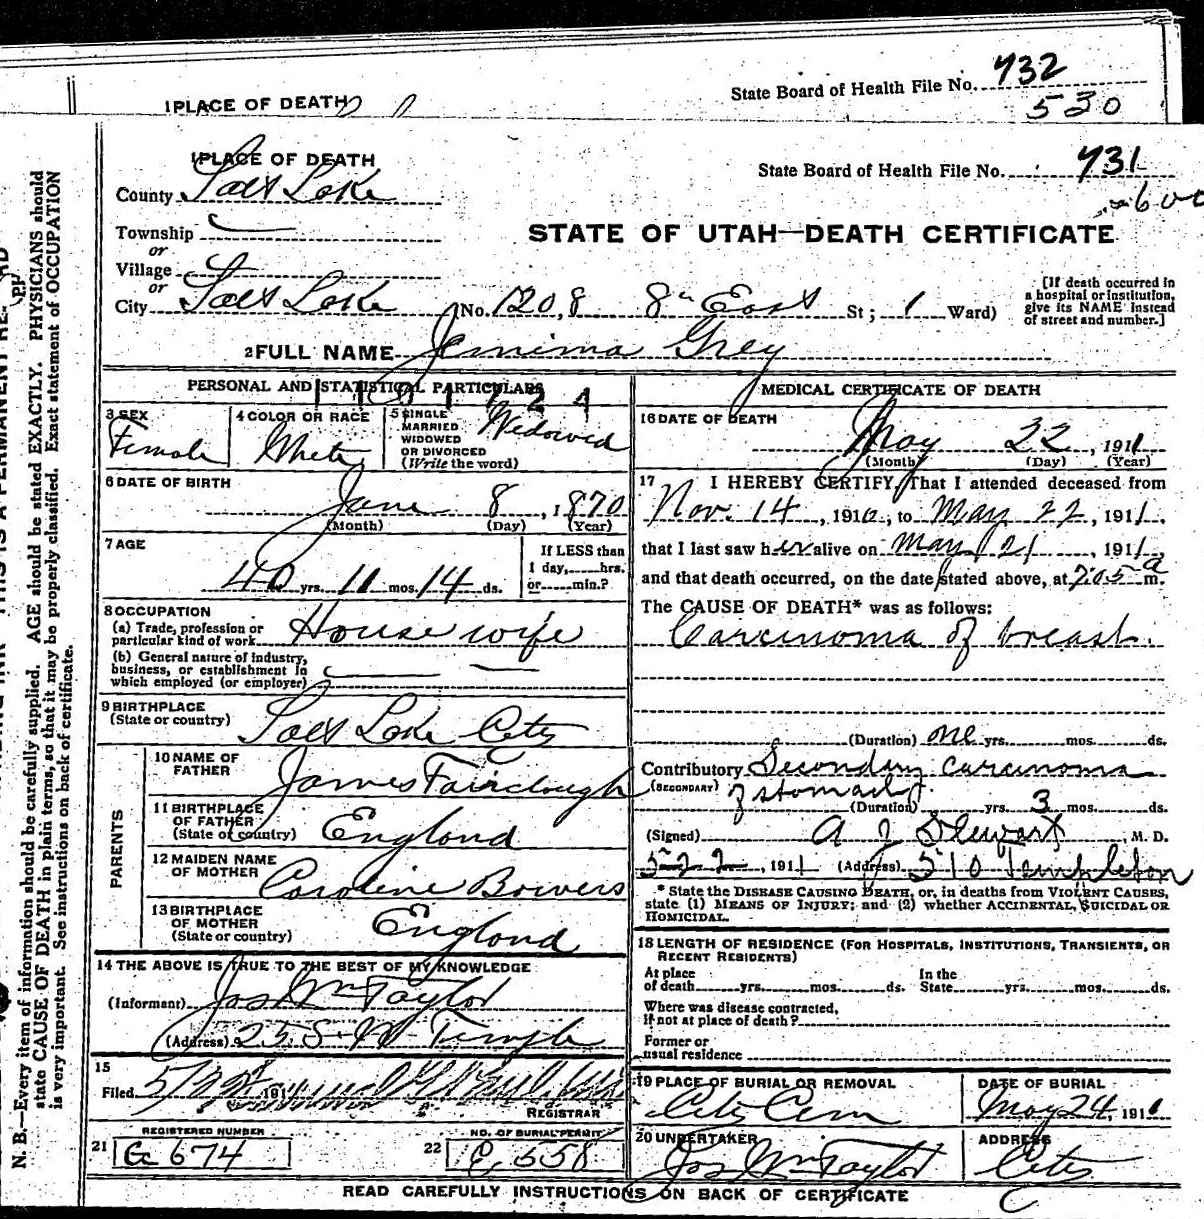 1 PLACE OF DEATH
State Board of Health File No. 732
530
1 PLACE OF DEATH
State Board of Health File No. 731
County Salt Lake
Township
STATE OF UTAH—DEATH CERTIFICATE
or
Village
or
City Salt Lake (No. 1208 8th East St; 1 Ward)
[If death occurred in a hospital or institution, give its NAME instead of street and number.]
2 FULL NAME Jemima Grey
PERSONAL AND STATISTICAL PARTICULARS
3 SEX
Female
4 COLOR OR RACE
White
5 SINGLE MARRIED WIDOWED OR DIVORCED (Write the word)
Widowed
6 DATE OF BIRTH
June 8, 1870
(Month) (Day) (Year)
7 AGE
40 yrs. 11 mos. 14 ds.
If LESS than 1 day, hrs. or min.?
8 OCCUPATION
(a) Trade, profession or particular kind of work House wife
(b) General nature of industry, business, or establishment in which employed (or employer)
9 BIRTHPLACE
(State or country) Salt Lake City
PARENTS
10 NAME OF FATHER James Fairclough
11 BIRTHPLACE OF FATHER (State or country) England
12 MAIDEN NAME OF MOTHER Caroline Bowers
13 BIRTHPLACE OF MOTHER (State or country) England
14 THE ABOVE IS TRUE TO THE BEST OF MY KNOWLEDGE
(Informant) Jos Wm Taylor
(Address) 25 S. W Temple
15
Filed 191
REGISTRAR
REGISTERED NUMBER
21 G 674
NO. OF BURIAL PERMIT
22 C, 558
MEDICAL CERTIFICATE OF DEATH
16 DATE OF DEATH
May 22, 1911
(Month) (Day) (Year)
17 I HEREBY CERTIFY, That I attended deceased from
Nov. 14, 1910, to May 22, 1911,
that I last saw her alive on May 21, 1911,
and that death occurred, on the date stated above, at 7.05 a m.
The CAUSE OF DEATH* was as follows:
Carcinoma of breast.
(Duration) one yrs. mos. ds.
Contributory Secondary carcinoma
(SECONDARY) of stomach
(Duration) yrs. 3 mos. ds.
(Signed) A J Stewart M. D.
5-22, 1911 (Address) 510 Templeton
* State the DISEASE CAUSING DEATH, or, in deaths from VIOLENT CAUSES, state (1) MEANS OF INJURY; and (2) whether ACCIDENTAL, SUICIDAL OR HOMICIDAL.
18 LENGTH OF RESIDENCE (FOR HOSPITALS, INSTITUTIONS, TRANSIENTS, OR RECENT RESIDENTS)
At place of death yrs. mos. ds. In the State yrs. mos. ds.
Where was disease contracted, If not at place of death?
Former or usual residence
19 PLACE OF BURIAL OR REMOVAL
City Cem
DATE OF BURIAL
May 24, 1911
20 UNDERTAKER
Jos Wm Taylor
ADDRESS
City
READ CAREFULLY INSTRUCTIONS ON BACK OF CERTIFICATE
N. B.—Every item of information should be carefully supplied. AGE should be stated EXACTLY. PHYSICIANS should
state CAUSE OF DEATH in plain terms, so that it may be properly classified. Exact statement of OCCUPATION
is very important. See instructions on back of certificate.